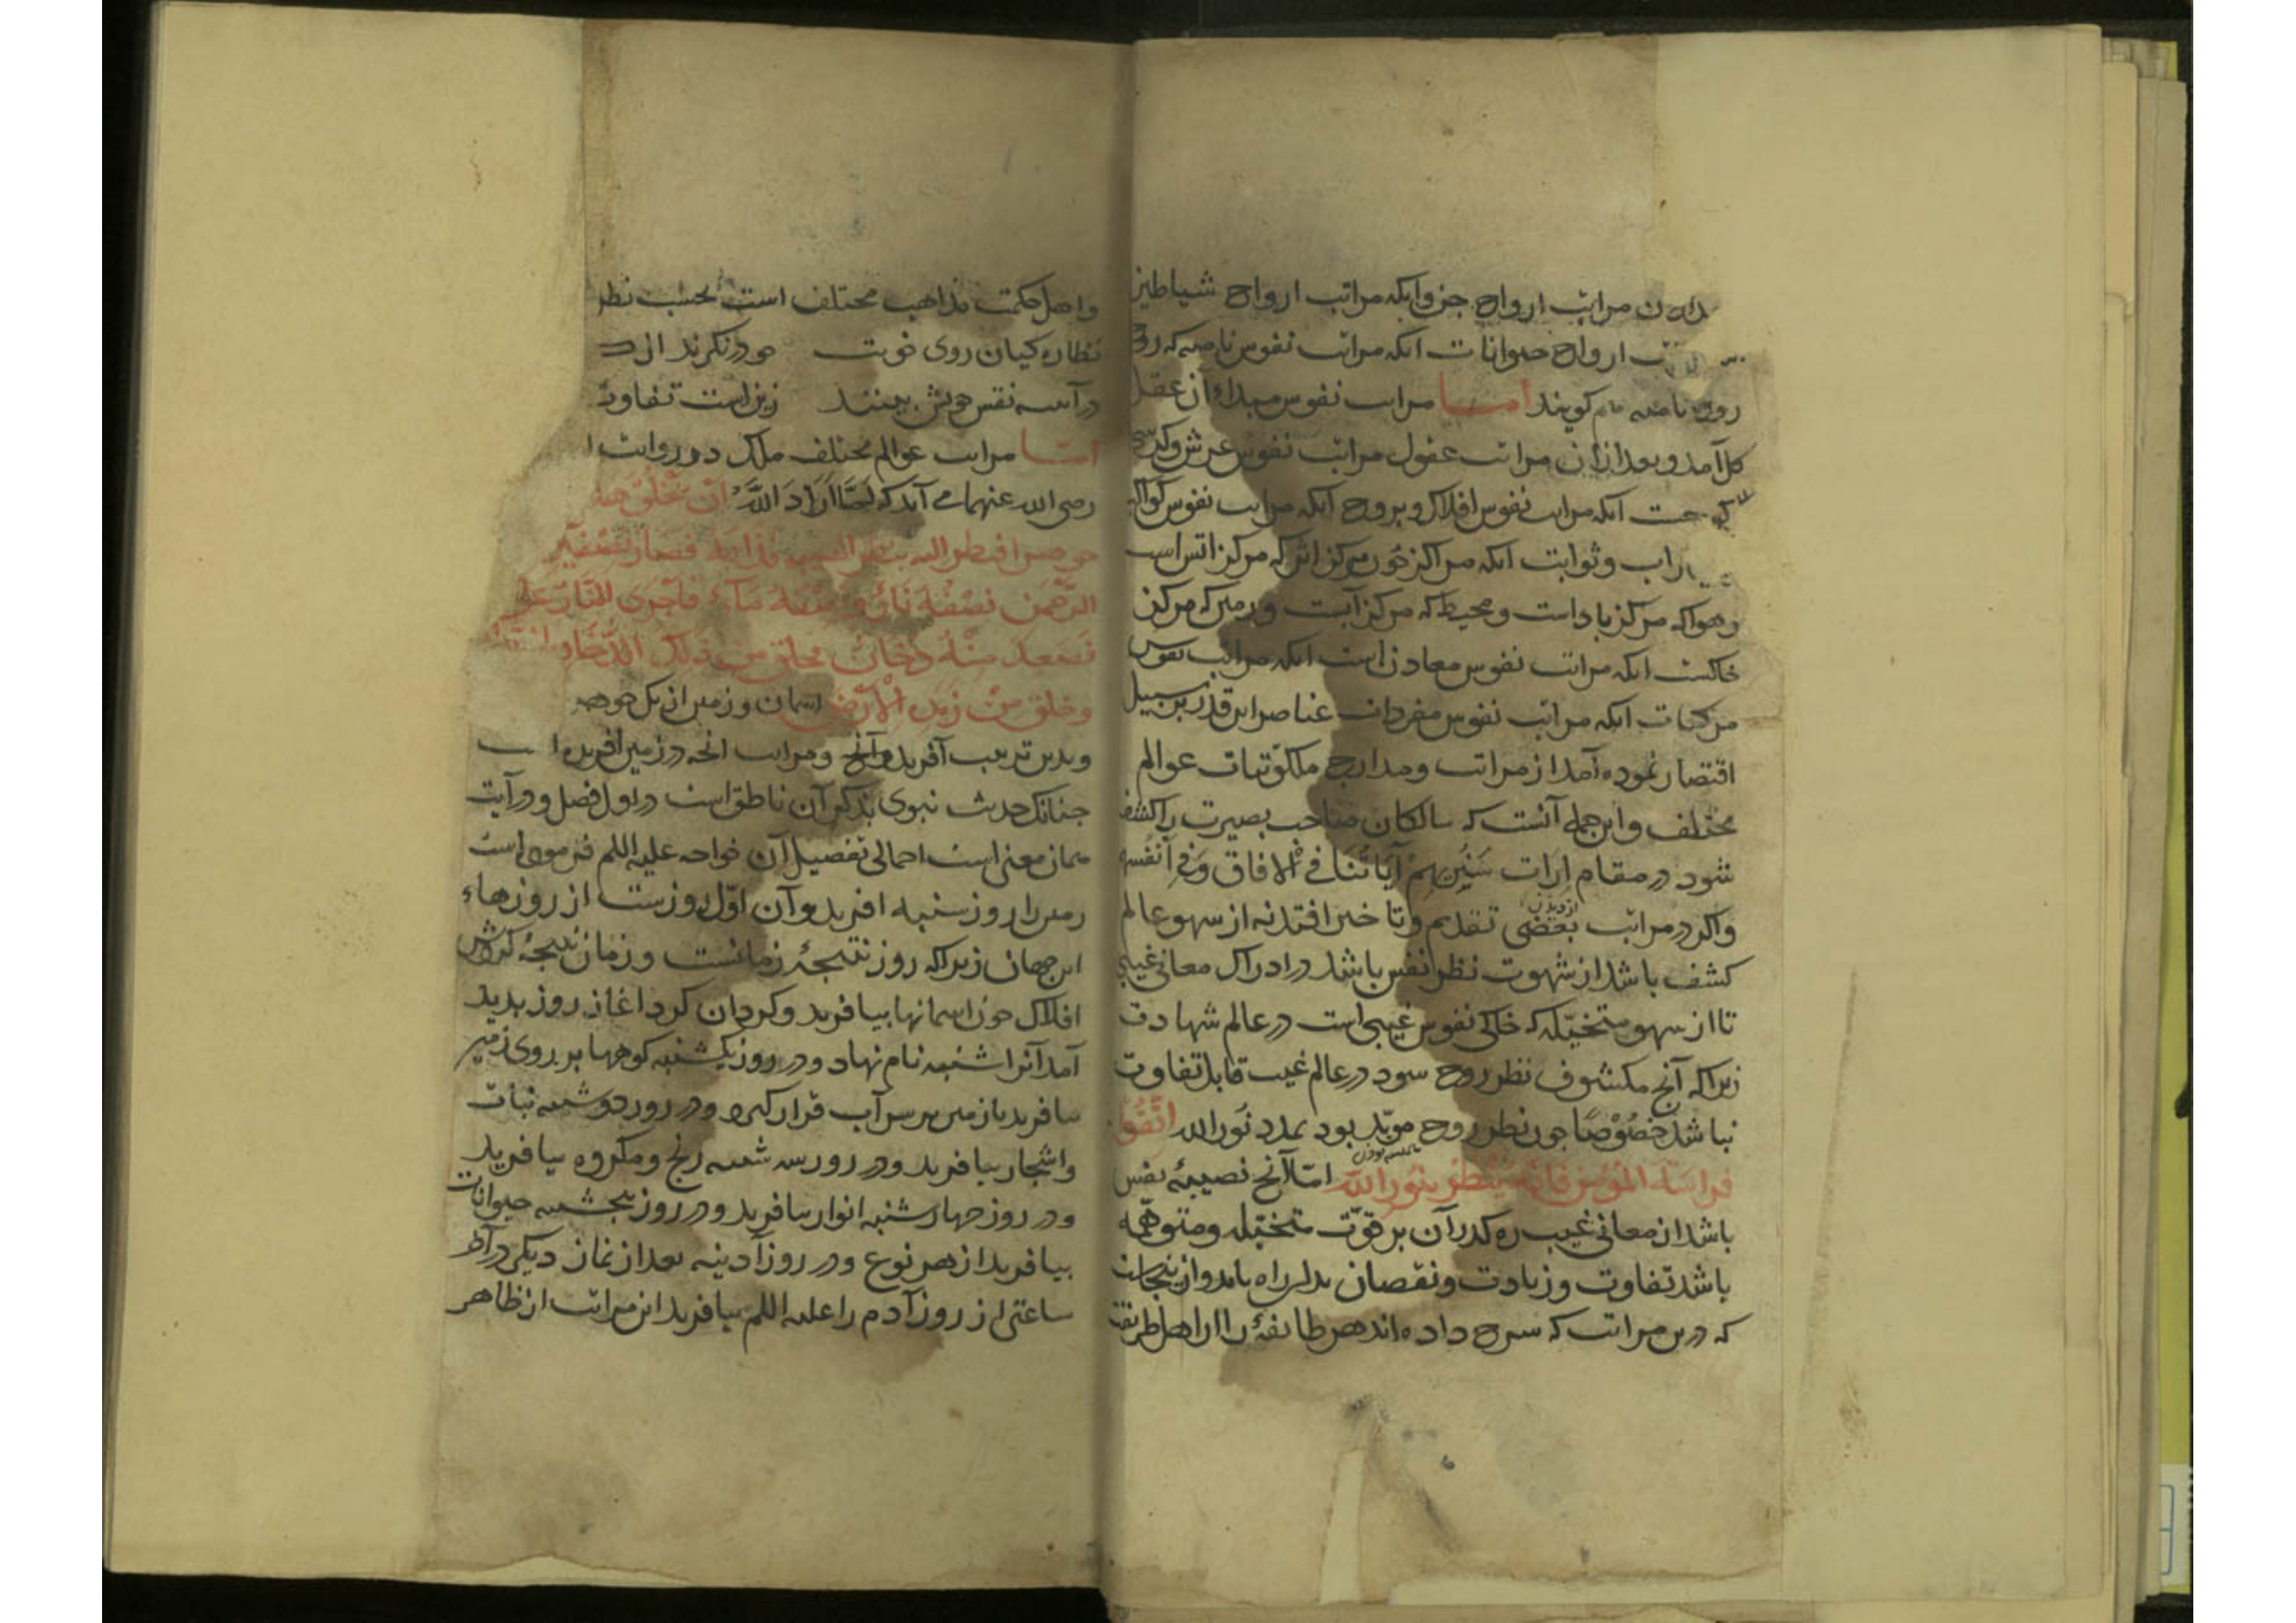 مراتب ارواح جن وانکه مراتب ارواح شیاطین
ارواح حیوانات انکه مراتب نفوس نامیه که روح
روح نامیه هم کویند اما مراتب نفوس مبداء آن عقل
کل آمد وبعد ازان مراتب عقول مراتب نفوس عرش وکرسی
انکه مراتب نفوس افلاک وبروج انکه مراتب نفوس کواکب
وثوابت انکه مراکز چون مرکز اثیر که مرکز اتش است
وهوا که مرکز باد است ومحیط که مرکز آبست وزمین که مرکز
خاکست انکه مراتب نفوس معادن است انکه مراتب نفوس
مرکبات انکه مراتب نفوس مفردات عناصر این قدر برین سبیل
اقتصار نموده آمد از مراتب ومدارج ملکوتیات عوالم
مختلف واین جمله آنست که سالکان صاحب بصیرت را کشف
شود در مقام اراءت سَنُرِیهِمْ آیَاتِنَا فِی الافاق وَفِی اَنْفُسِهِم
واکر در مراتب بعضی تقدیم وتاخیر افتد نه از سهو عالم
کشف باشد از شهوت نظر نفس باشد در ادراک معانی غیبی
تا از سهو متخیّله که خاکی نفوس غیبی است در عالم شهادت
زیراکه آنچ مکشوف نظر روح شود در عالم غیب قابل تفاوت
نباشد خصُوْصًا چون نظر روح مویّد بود بمدد نور الله اتّقوا
فراسة المؤمن فانّه ینظر بنور الله امّا آنچ نصیبهٔ نفس
باشد از معانی غیب ره کذر آن بر قوّت متخیّله ومتوهّمه
باشد تفاوت وزیادت ونقصان بدان راه یابد وازینجاست
که درین مراتب که شرح داده اند هر طایفهٔ را از اهل طریقت
واهل حکمت مذاهب مختلف است بحسب نظر
نظاره کیان روی خوبت چون درنکرند از
در آینه نقش خویش بینند زین است تفاوت
امّا مراتب عوالم مختلف ملک در روایت
رضی الله عنهما می آید که لَمَّا اَرَادَ اللّٰهُ اَنْ یَخْلُقَ
فنظر الیه بنظر الهیبة فذابه فصار نصفین
الرَّحْمٰنِ نِصْفُهُ نَارٌ وَنِصْفُهُ مَاءٌ فاَجْرَی النَّارَ عَلَی
فصعد مِنْهُ دخان فخلق من ذلک الدُّخَان
وخلق مِنْ زبده الْاَرْض اسمان وزمین از یک جوهر
وبدین ترتیب آفرید وآنچ ومراتب انچه در زمین افریده
چنانک حدیث نبوی بذکر آن ناطق است در اول فصل ودر آیت
همان معنی است اجمالی تفصیل آن خواجه علیه السلم فرموده است
زمین را روز شنبه افرید وآن اوّل روزست از روزهاء
این جهان زیراکه روز نتیجهٔ زمانست وزمان نتیجهٔ کردش
افلاک چون اسمانها بیافرید وکردان کرد اغاز روز پدید
آمد آنرا شنبه نام نهاد ودر روز یکشنبه کوهها بر روی زمین
بیافرید تا زمین بر سر آب قرار کیرد ودر روز دوشنبه نبات
واشجار بیافرید ودر روز سه شنبه رنج ومکروه بیافرید
ودر روز چهارشنبه انوار بیافرید ودر روز پنجشنبه حیوانات
بیافرید از هر نوع ودر روز آدینه بعد از نماز دیکر در آخر
ساعتی از روز آدم را علیه السلم بیافرید این مراتب از ظاهر